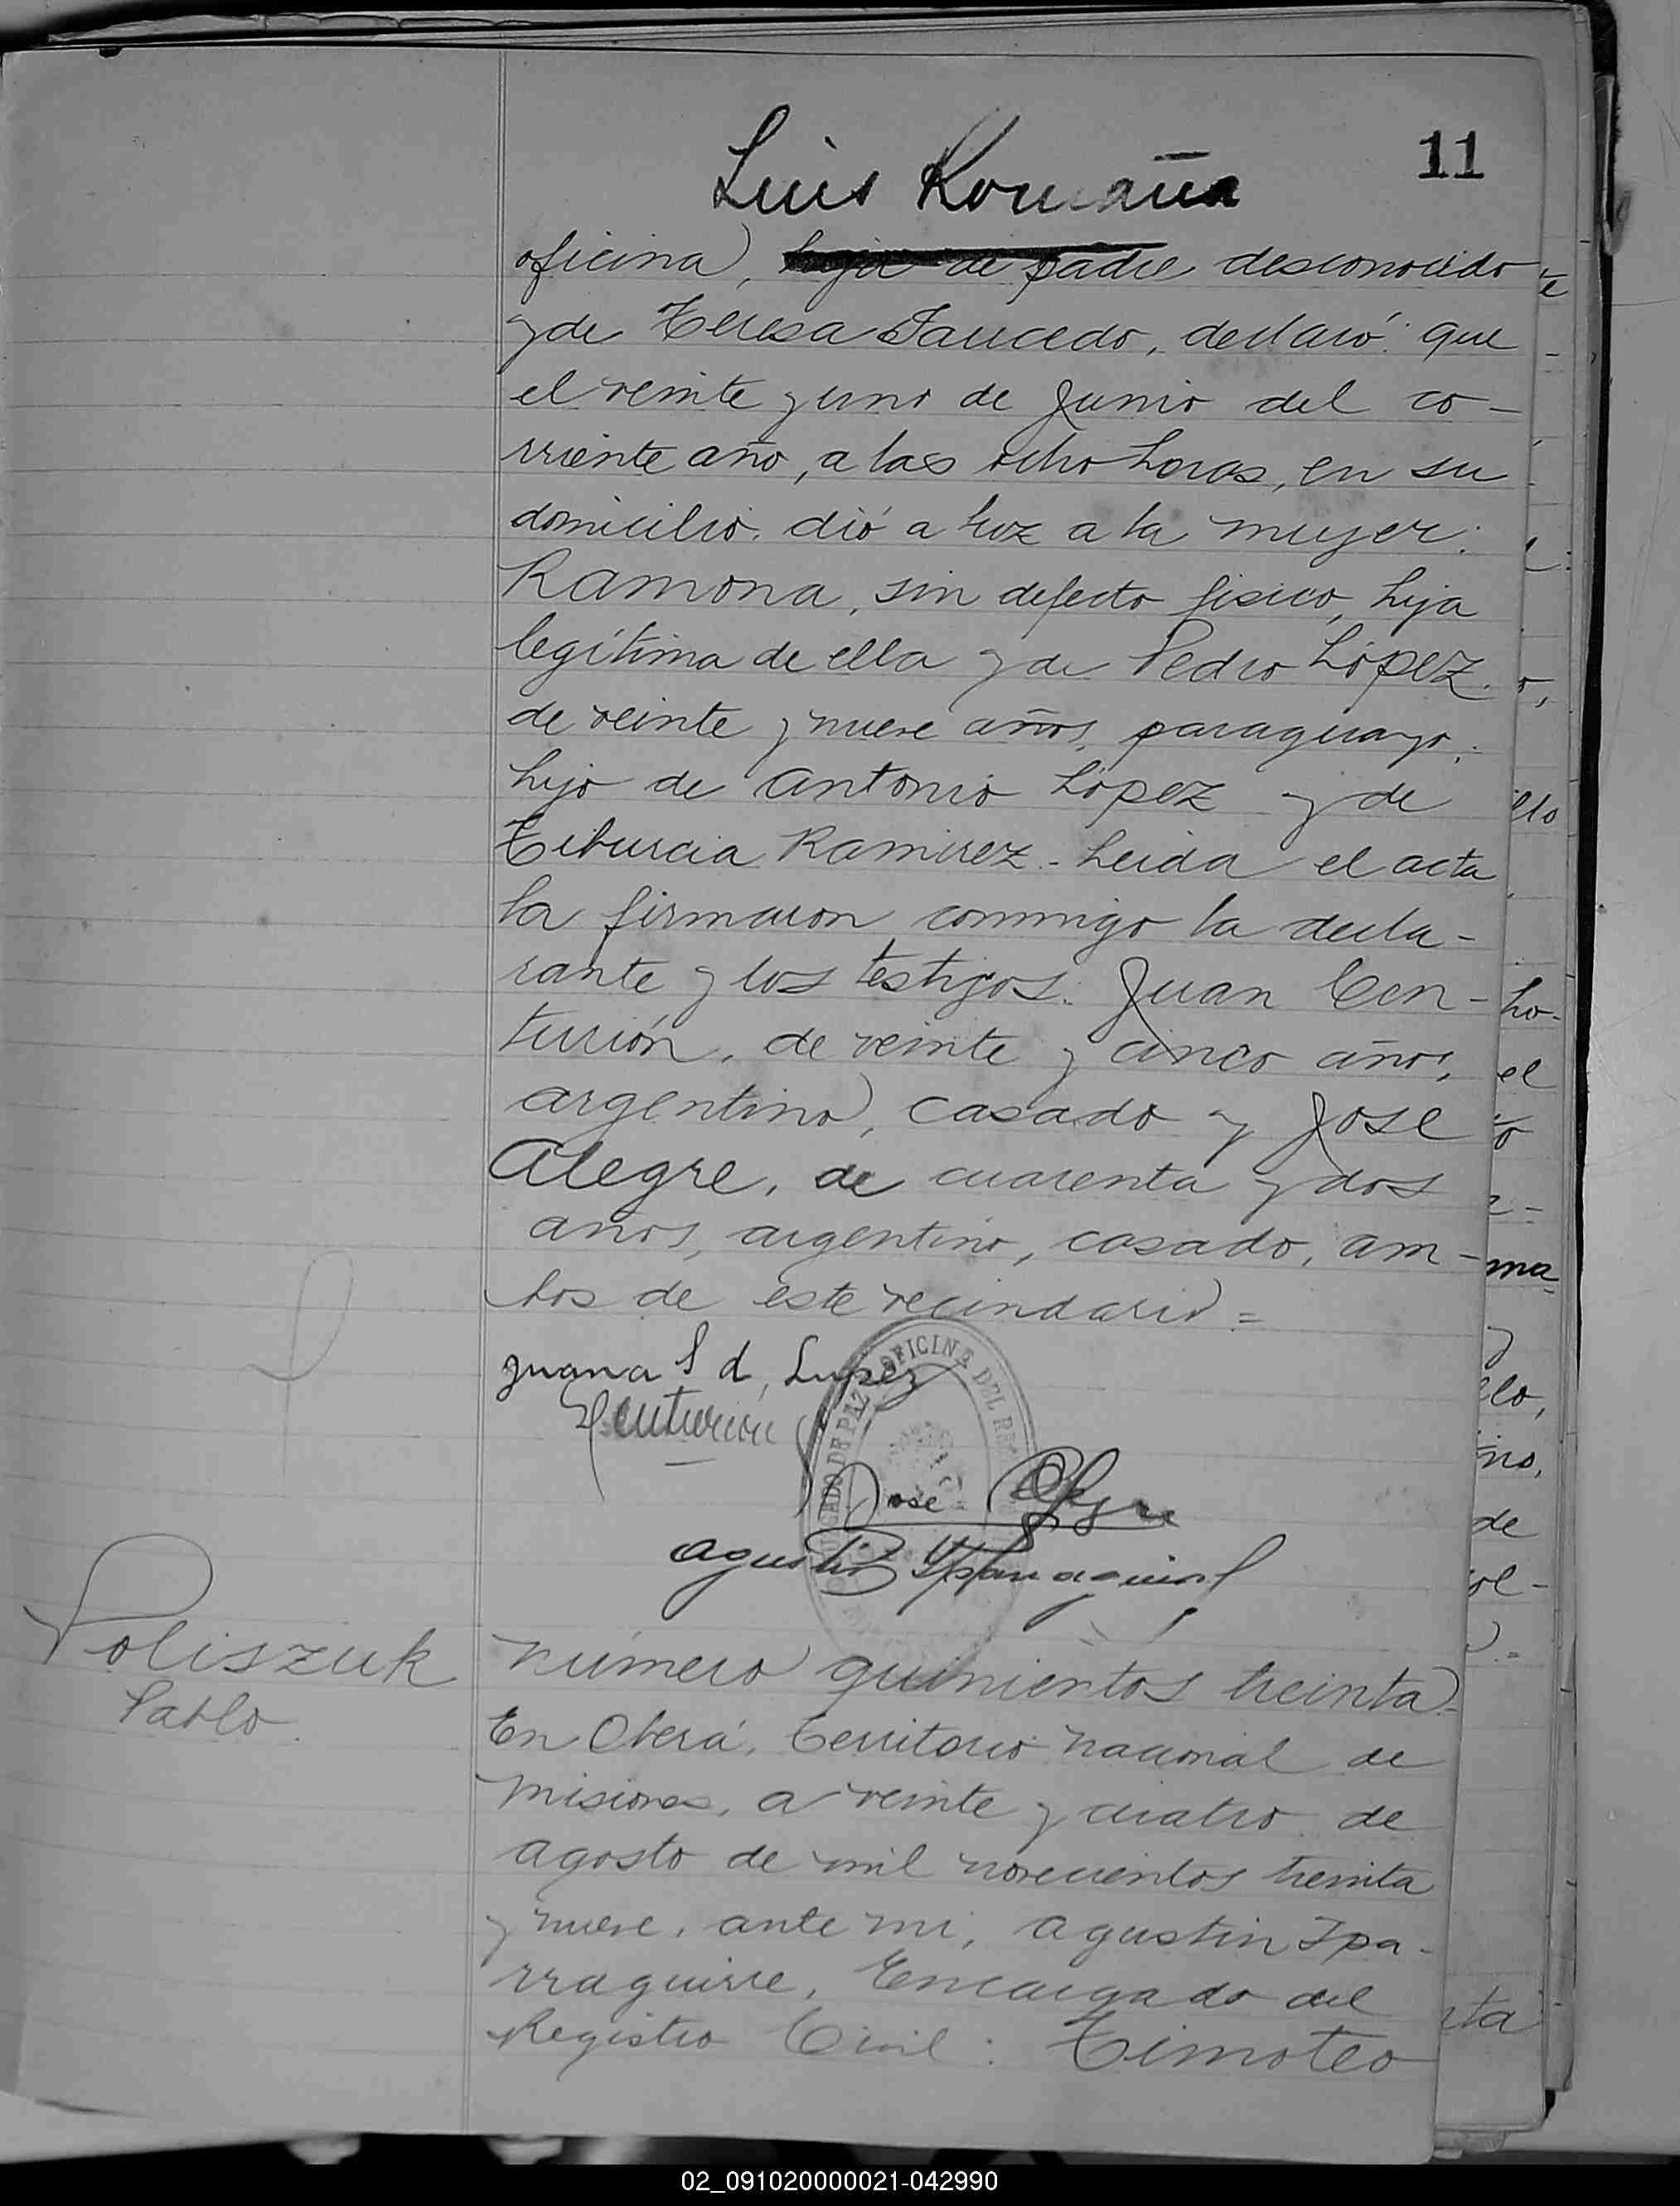 11
Luis Romaña
oficina), hija de padre desconocido
y de Teresa Saucedo, declaró: que
el veinte y uno de Junio del co-
rriente año, a las ocho horas, en su
domicilio, dió a luz a la mujer:
Ramona, sin defecto fisico, hija
legítima de ella y de Pedro López.
de veinte y nueve años, paraguayo,
hijo de Antonio López y de
Tiburcia Ramirez - Leida el acta
la firmaron conmigo la decla-
rante y los testigos: Juan Cen-
turión, de veinte y cinco años,
argentino, casado y José
Alegre, de cuarenta y dos
años, argentino, casado, am-
bos de este vecindario =
Juana S d, Lopez
Centurion
OFICINA DEL
JUZGADO DE PAZ
Jose Alegre
Agustin Yparraguirre
Poliszuk
Pablo.
Número quinientos treinta =
En Oberá, Territorio Nacional de
Misiones, a veinte y cuatro de
Agosto de mil novecientos treinta
y nueve, ante mi, Agustin Ipa-
rraguirre, Encargado del
Registro Civil: Timoteo
02_091020000021-042990